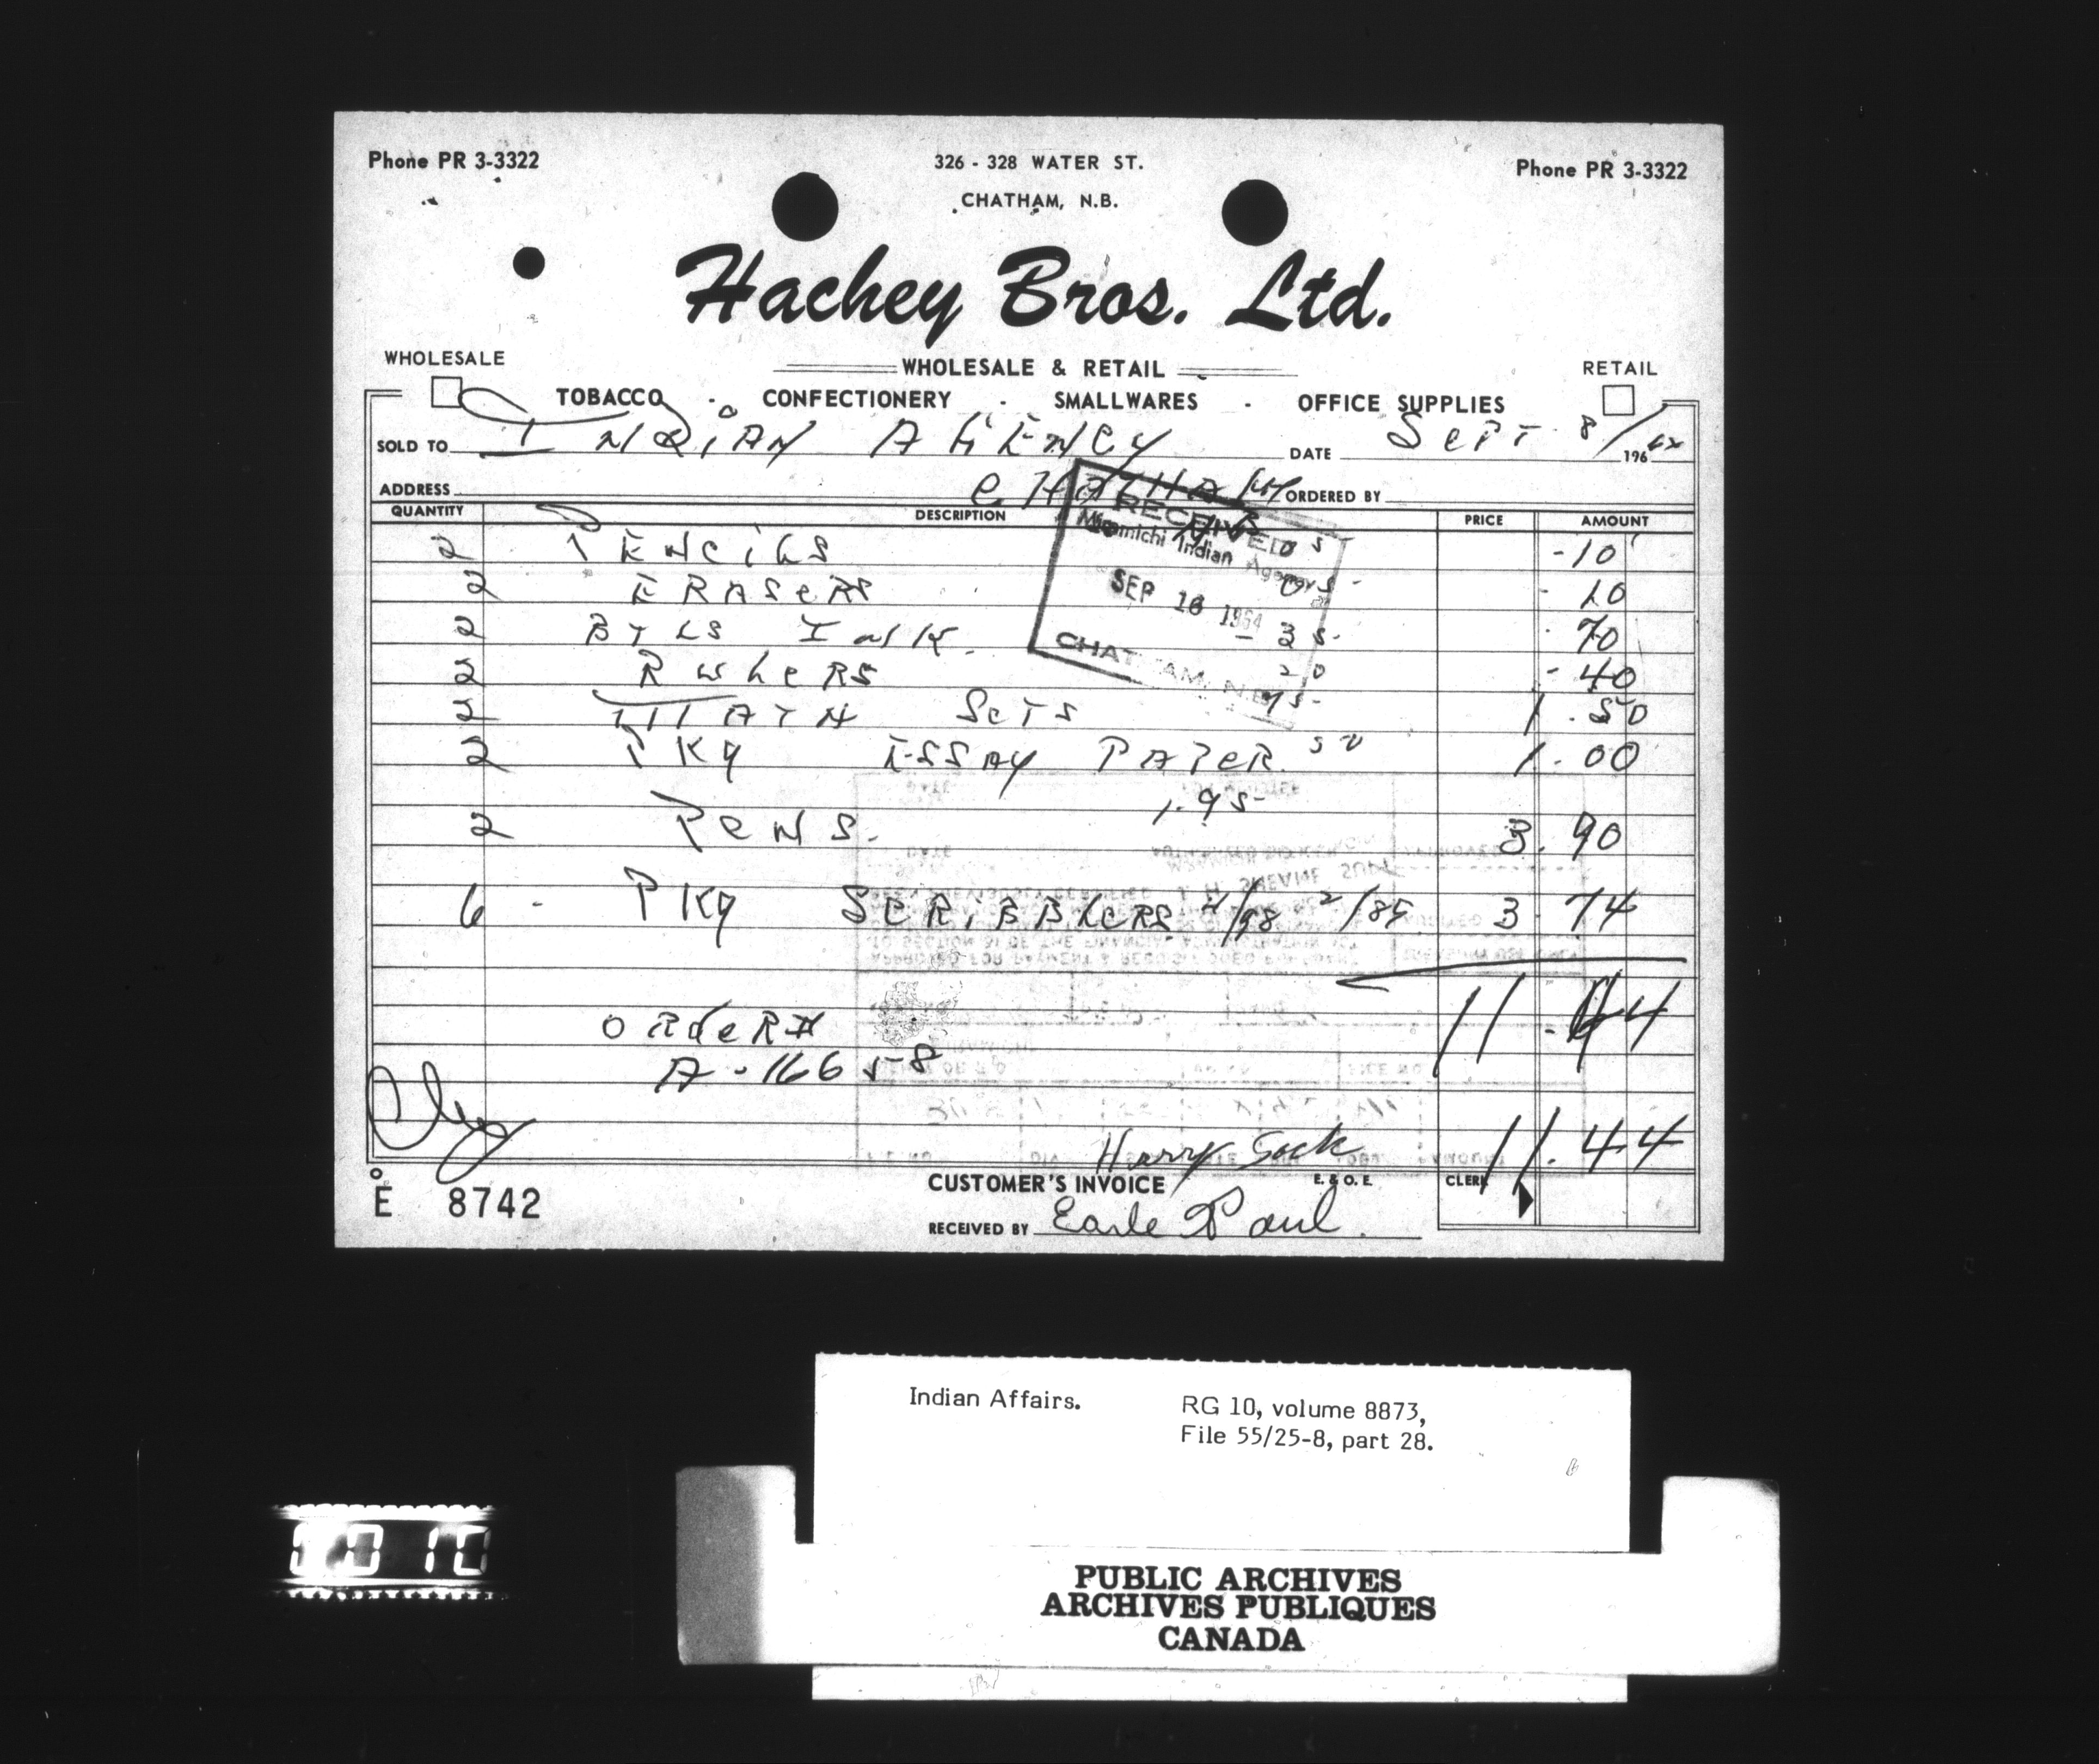 Phone PR 3-3322
326 - 328 WATER ST.
Phone PR 3-3322
CHATHAM, N.B.
Hachey Bros. Ltd.
WHOLESALE
WHOLESALE & RETAIL
RETAIL
TOBACCO - CONFECTIONERY - SMALLWARES - OFFICE SUPPLIES
SOLD TO INDIAN AGENCY DATE SEPT 8/ 1964
ADDRESS CHATHAM ORDERED BY
QUANTITY DESCRIPTION PRICE AMOUNT
RECEIVED
Miramichi Indian Agency
SEP 16 1964
CHATHAM, N.B.
2 PENCILS 05 -10
2 ERASERS 05- - 10
2 BTLS INK - 35- 70
2 RULERS 20 - 40
2 MATH SETS 75- 1.50
2 PKG ESSAY PAPER 50 1.00
2 PENS. 1.95- 3.90
6 - PKG SCRIBBLERS 4/98 2/89 3 74
11.44
ORDER#
A-16658
11.44
Harry Sock
CUSTOMER'S INVOICE E. & O. E. CLERK
E 8742
RECEIVED BY Earle Paul.
Indian Affairs. RG 10, volume 8873,
File 55/25-8, part 28.
PUBLIC ARCHIVES
ARCHIVES PUBLIQUES
CANADA